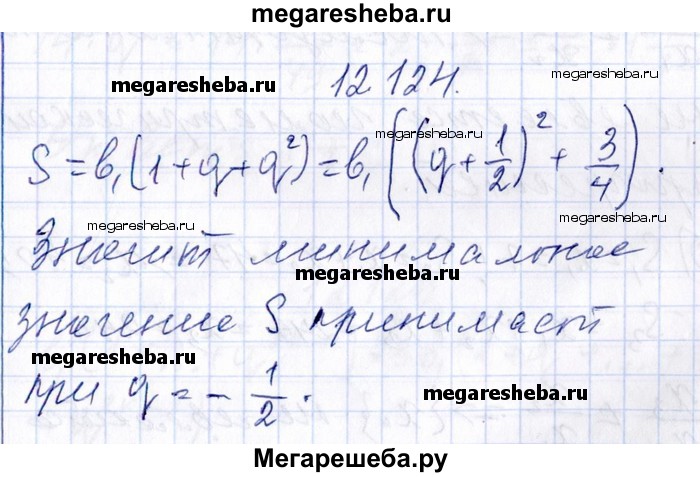 megaresheba.ru
megaresheba.ru
12.124.
megaresheba.ru
megaresheba.ru
S = b₁(1+q+q²) = b₁((q+1/2)²+3/4).
megaresheba.ru
megaresheba.ru
Значит минимальное
megaresheba.ru
значение S принимает
megaresheba.ru
при q = - 1/2.
megaresheba.ru
Мегарешеба.ру